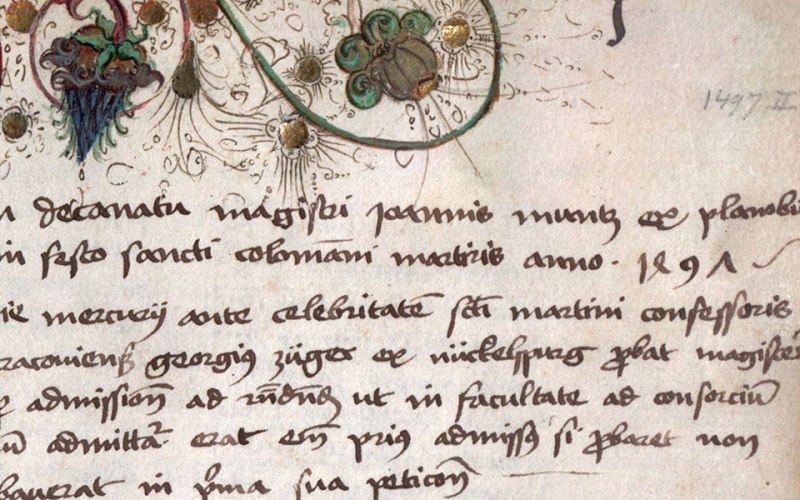 1497 II
decanatu magistri Joannis muntz ex planobi
in festo sancti colomāni martiris anno · 1897
ie mercurij ante celebritatē scti martini confessoris
racoviens georgius züges ex nückelspurg pbat magister
admissionē ad ut in facultate ad consorciū
ū admittar erat em prius admissus si pbaret non
bauerat in pma sua peticone